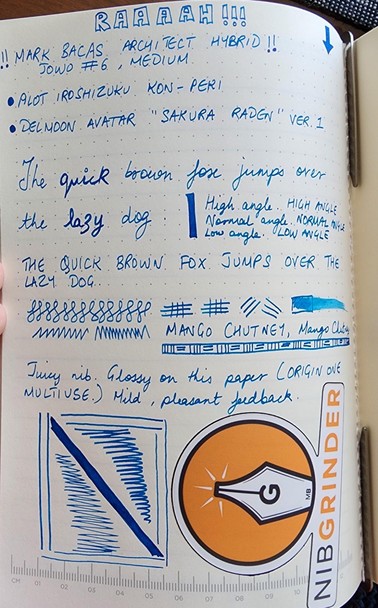 RAAAAH!!!
!! MARK BACAS ARCHITECT HYBRID !!
JOWO #6, MEDIUM
• PILOT IROSHIZUKU KON-PEKI
• DELMOON AVATAR "SAKURA RADEN" VER. 1
The quick brown fox jumps over
the lazy dog.
High angle. HIGH ANGLE
Normal angle. NORMAL ANGLE
Low angle. LOW ANGLE
THE QUICK BROWN FOX JUMPS OVER THE
LAZY DOG.
MANGO CHUTNEY, Mango Chutney
Juicy nib. Glossy on this paper (ORIGIN ONE
MULTIUSE.) Mild, pleasant feedback.
G
MB
NIBGRINDER
CM 01 02 03 04 05 06 07 08 09 10